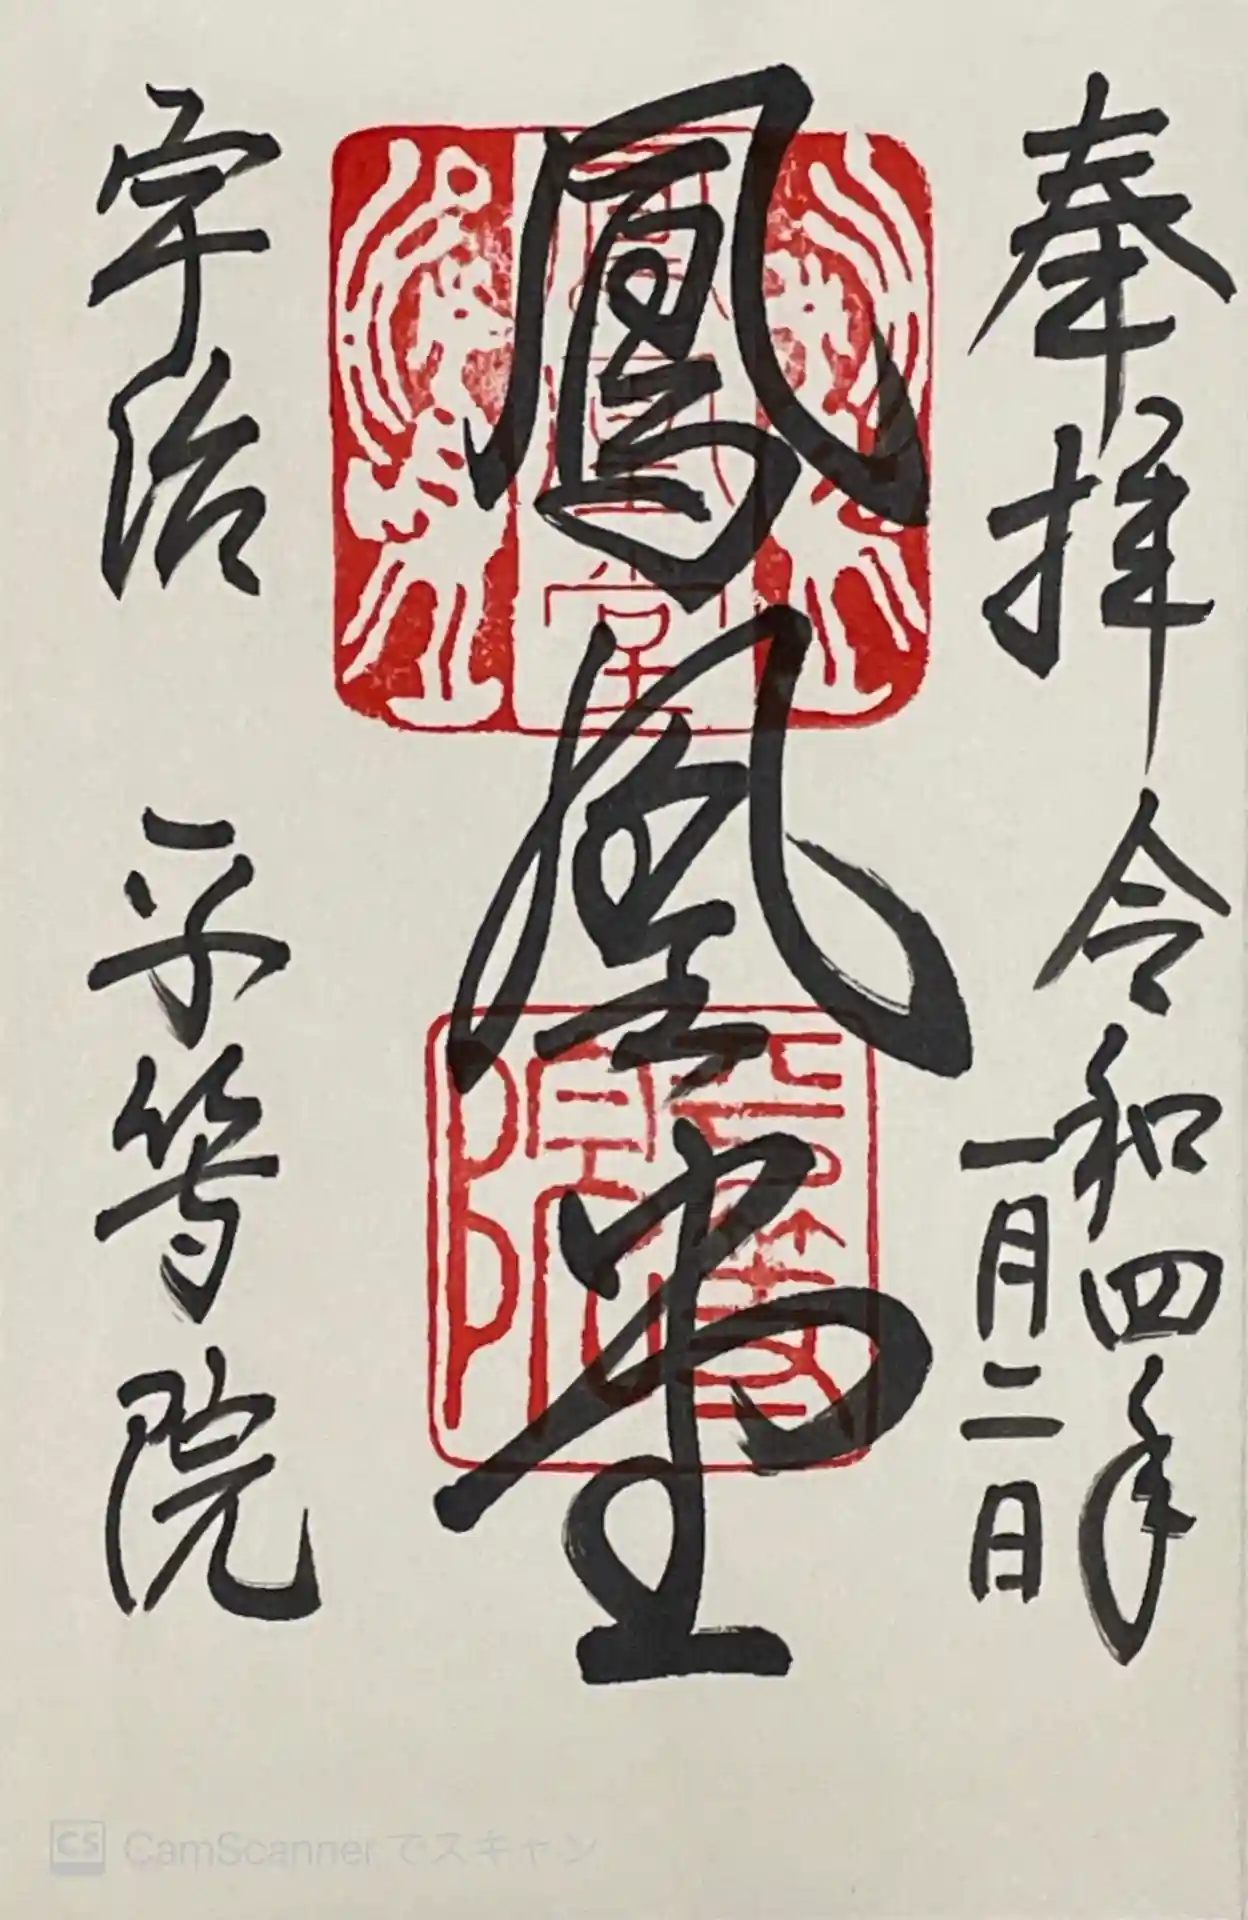 奉拝 令和四年
一月二日
鳳凰堂
宇治 平等院
鳳凰堂
平等院
CS CamScannerでスキャン